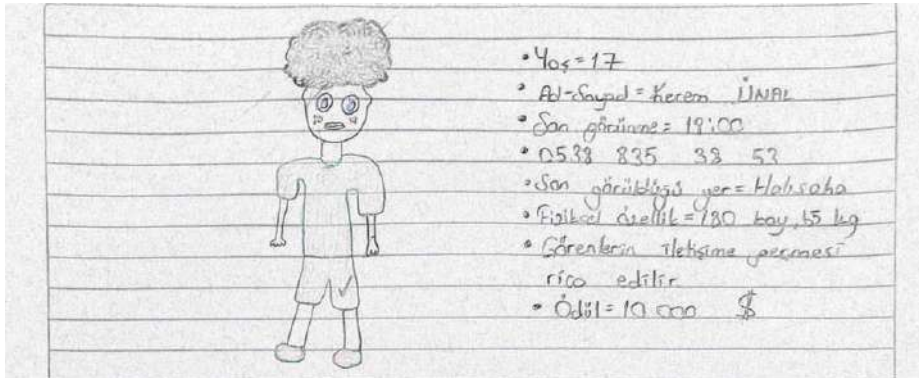 • Yaş = 17
• Ad-Soyad = Kerem ÜNAL
• Son görünme = 19:00
• 0538 835 38 53
• Son görüldüğü yer = Halısaha
• Fiziksel özellik = 180 boy, 65 kg
• Görenlerin iletişime geçmesi
rica edilir
• Ödül = 10 000 $